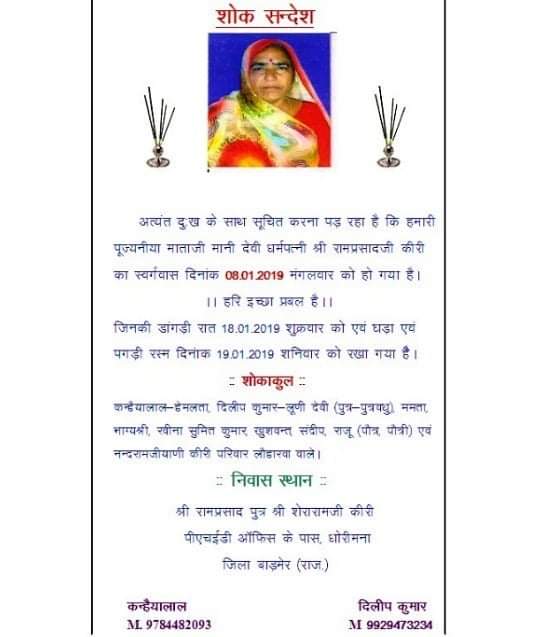 शोक सन्देश
अत्यंत दुःख के साथ सूचित करना पड़ रहा है कि हमारी
पूज्यनीया माताजी मानी देवी धर्मपत्नी श्री रामप्रसादजी कीरी
का स्वर्गवास दिनांक 08.01.2019 मंगलवार को हो गया है।
।। हरि इच्छा प्रबल है।।
जिनकी डांगड़ी रात 18.01.2019 शुक्रवार को एवं घड़ा एवं
पगड़ी रस्म दिनांक 19.01.2019 शनिवार को रखा गया है।
:: शोकाकुल ::
कन्हैयालाल–हेमलता, दिलीप कुमार–लूणी देवी (पुत्र–पुत्रवधु), ममता,
भाग्यश्री, रवीना सुमित कुमार, खुशवन्त, संदीप, राजू (पौत्र, पौत्री) एवं
नन्दरामजीयाणी कीरी परिवार लौहारवा वाले।
:: निवास स्थान ::
श्री रामप्रसाद पुत्र श्री शेरारामजी कीरी
पीएचईडी ऑफिस के पास, धोरीमना
जिला बाड़मेर (राज.)
कन्हैयालाल
M. 9784482093
दिलीप कुमार
M 9929473234